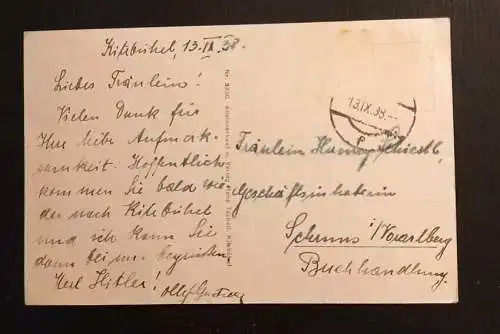 Kitzbühel, 13.IX.38.
Liebes Fräulein!
Vielen Dank für
Ihre liebe Aufmerk-
samkeit. Hoffentlich
kommen Sie bald wie-
der nach Kitzbühel
und ich kann Sie
dann bei mir begrüßen
Heil Hitler!
13.IX.38
Fräulein
Geschäftsinhaberin
Schruns i/Vorarlberg
Buchhandlung.